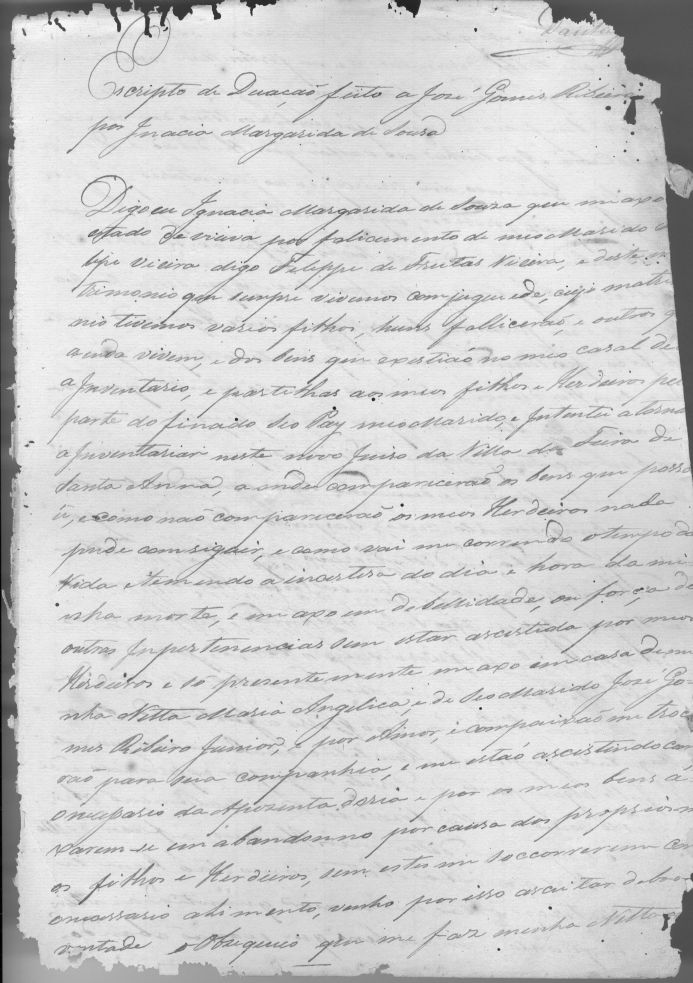 Escripto de Duaçaõ feito a José Gomes Ribeiro
por Ignacia Margarida de Souza
Digo eu Ignacia Margarida de Souza que me axo
estado de viuva por falicimento de meo Marido
Vieira digo Felippe de Freitas Vieira, e deste
trimonio que sempre vivemos com, cujo matri
nio tivemos varios filhos, huns falliceraõ, e outros q
ainda vivem, e dos bens que existiaõ no meo casal dei
a Inventario, e partilhas aos meos filhos e Herdeiros pela
parte do finado seo Pay meo Marido, e Intentei a torna
a Inventariar neste novo Juizo da Villa da Feira de
Santa Anna, a onde compariceraõ os bens que possu
i, e como naõ compariceraõ os meos Herdeiros nada
pude comsiguir, e como vai me correndo o tempo da
vida e temendo a incerteza do dia e hora da mi
nha morte, e me axo em debellidade, ou força de
outras Inpertenencias sem estar ascistida por meos
Herdeiros e só prezentemente me axo em casa de mi
nha Netta Maria Angelica, e de seo Marido José Go
mes Ribeiro Junior, e por Amor, e compaixaõ me
raõ para sua companhia, e me estaõ ascistindo com
o da e por os meos bens a
xarem-se em abandonno por causa dos proprios m
os filhos e Herdeiros, sem estes me soccorrerem com
o necessario alimento, venho por isso asceitar de boa
vontade o Obzequio que me faz minha Netta